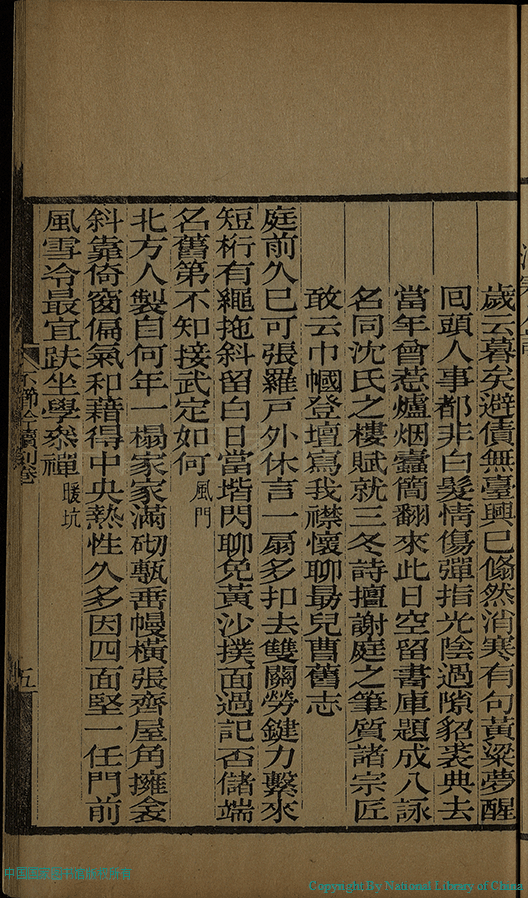 歲云暮矣避債無臺興已翛然消寒有句黃粱夢醒
回頭人事都非白髮情傷彈指光陰過隙貂裘典去
當年曾惹爐烟蠹簡翻來此日空留書庫題成八詠
名同沈氏之樓賦就三冬詩擅謝庭之筆質諸宗匠
敢云巾幗登壇寫我襟懷聊勗兒曹舊志
庭前久已可張羅戶外休言一扇多扣去雙關勞鍵力繫來
短桁有繩拖斜留白日當堦閃聊免黃沙撲面過記否儲端
名舊第不知接武定如何風門
北方人製自何年一榻家家滿砌甎垂幔橫張齊屋角擁衾
斜靠倚窗偏氣和藉得中央熱性久多因四面堅一任門前
風雪冷最宜趺坐學參禪暖坑
不節吟續刊卷
五
中国国家图书馆版权所有
Copyright By National Library of China